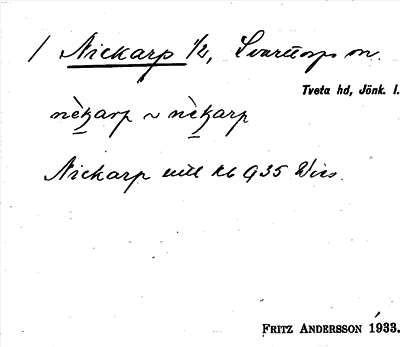 / Nickarp 1/2, Svarttorps sn.
Tveta hd, Jönk. l.
nèkarp ~ nèkarp
Nickarp
FRITZ ANDERSSON 1933.